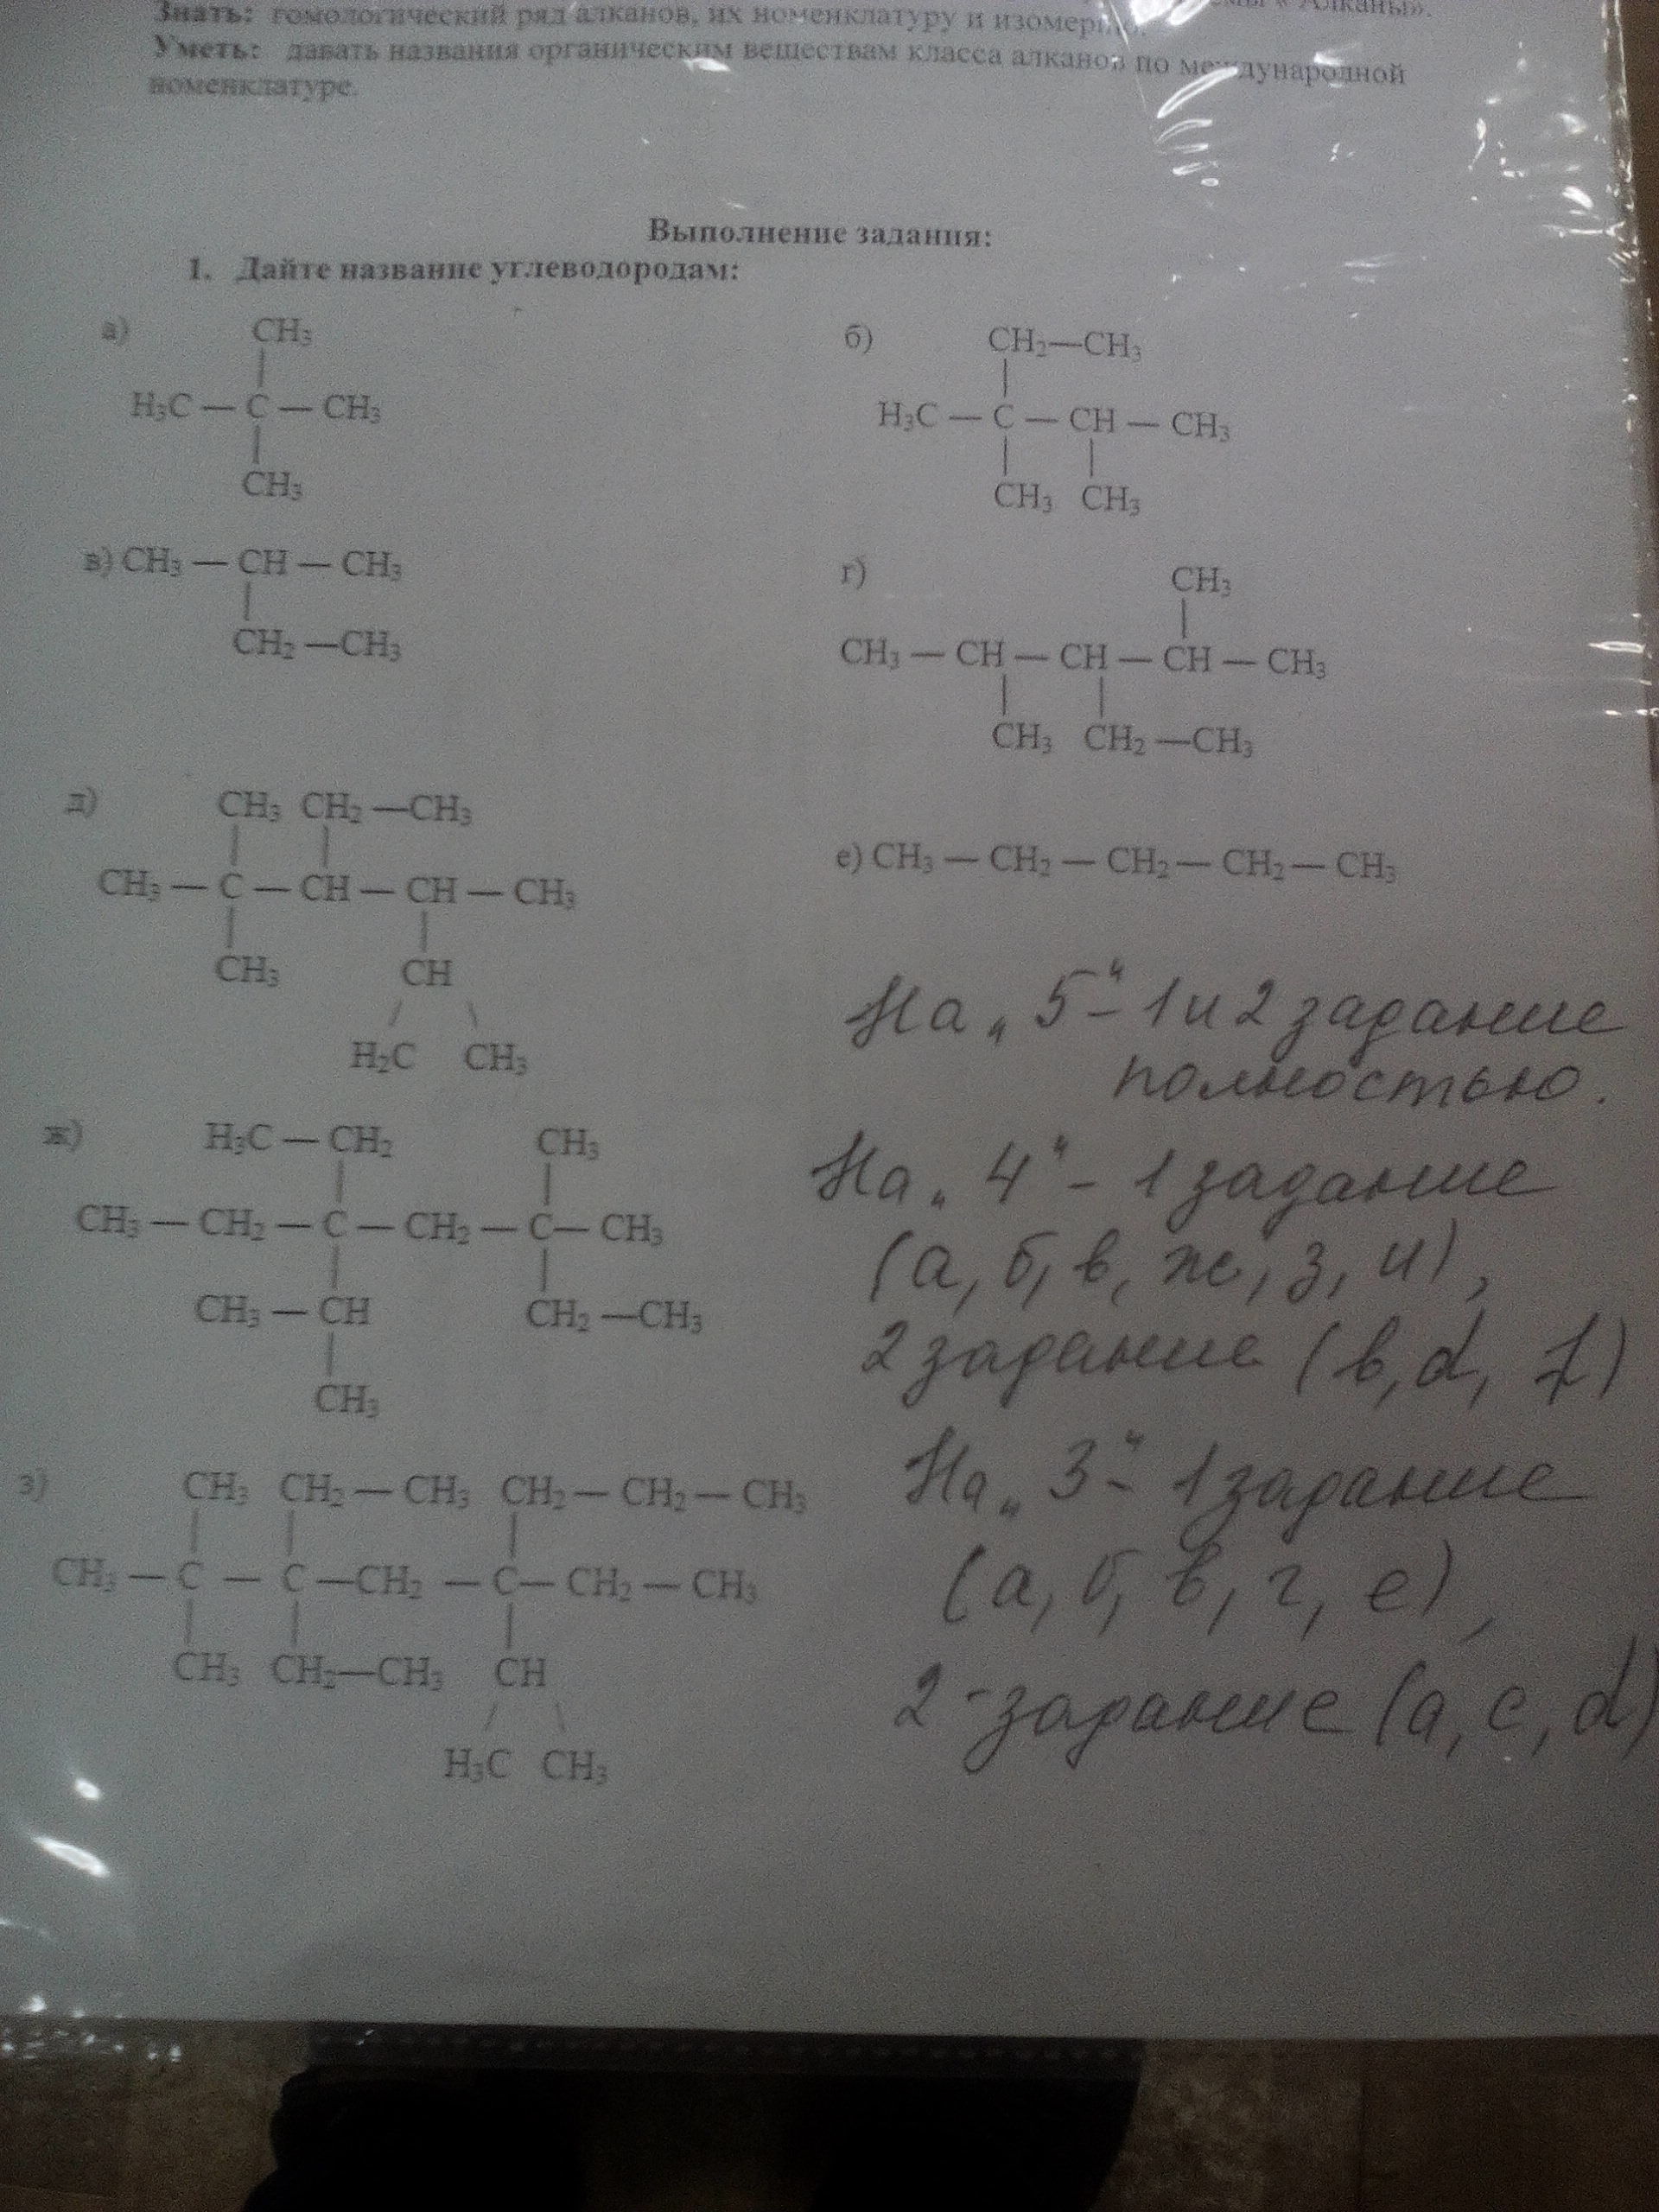 мы « Алканы».
Знать: гомологический ряд алканов, их номенклатуру и изомерию.
Уметь: давать названия органическим веществам класса алканов по международной
номенклатуре.
Выполнение задания:
1. Дайте название углеводородам:
а)
CH₃
H₃C — C — CH₃
CH₃
б)
CH₂—CH₃
H₃C — C — CH — CH₃
CH₃ CH₃
в) CH₃ — CH — CH₃
CH₂ —CH₃
г)
CH₃
CH₃ — CH — CH — CH — CH₃
CH₃ CH₂ —CH₃
д)
CH₃ CH₂ —CH₃
CH₃ — C — CH — CH — CH₃
CH₃ CH
H₂C CH₃
е) CH₃ — CH₂ — CH₂ — CH₂ — CH₃
ж)
H₃C — CH₂ CH₃
CH₃ — CH₂ — C — CH₂ — C — CH₃
CH₃ — CH CH₂ —CH₃
CH₃
з)
CH₃ CH₂ — CH₃ CH₂ — CH₂ — CH₃
CH₃ — C — C —CH₂ — C — CH₂ — CH₃
CH₃ CH₂—CH₃ CH
H₃C CH₃
На „5“ - 1 и 2 задание
полностью.
На „4“ - 1 задание
(а, б, в, ж, з, и),
2 задание (b, d, f)
На „3“ - 1 задание
(а, б, в, г, е),
2 - задание (a, c, d)